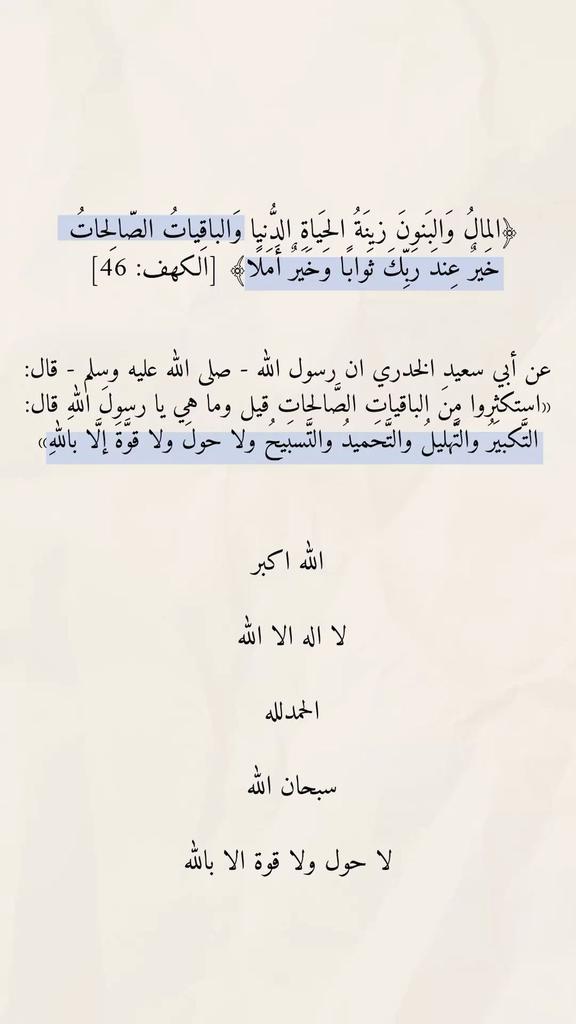 ﴿المالُ وَالبَنونَ زينَةُ الحَياةِ الدُّنيا وَالباقِياتُ الصّالِحاتُ
خَيرٌ عِندَ رَبِّكَ ثَوابًا وَخَيرٌ أَمَلًا﴾ [الكهف: 46]
عن أبي سعيد الخدري ان رسول الله - صلى الله عليه وسلم - قال:
«استكثِروا مِنَ الباقياتِ الصَّالحاتِ قيل وما هي يا رسولَ اللهِ قال:
التَّكبيرُ والتَّهليلُ والتَّحميدُ والتَّسبيحُ ولا حولَ ولا قوَّةَ إلَّا باللهِ»
الله اكبر
لا اله الا الله
الحمدلله
سبحان الله
لا حول ولا قوة الا بالله